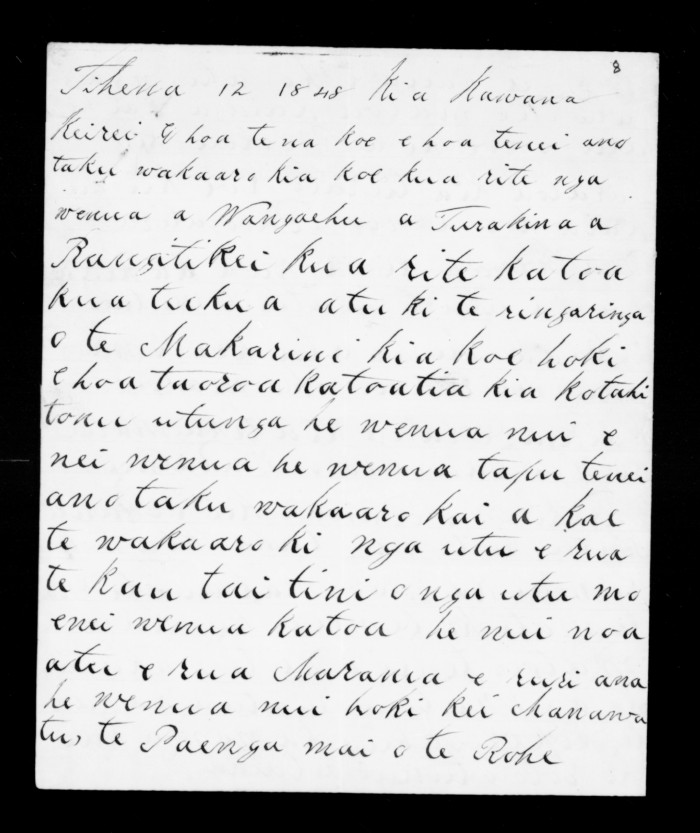 8
Tihema 12 1848 Kia Kawana
Keirei E hoa tena koe e hoa tenei ano
taku wakaaro kia koe kua rite nga
wenua a Wangaehu a Turakina a
Rangitikei kua rite katoa
kua tukua atu ki te ringaringa
o te Makarini kia koe hoki
e hoa tuoroa katoatia kia kotahi
tonu utunga he wenua nui e
nei wenua he wenua tapu tenei
ano taku wakaaro kai a koe
te wakaaro ki nga utu e rua
te kau tai tini o nga utu mo
enei wenua katoa he nui noa
atu e rua Marama e ruri ana
he wenua nui hoki kei Manawa
tu, te Paenga mai o te Rohe